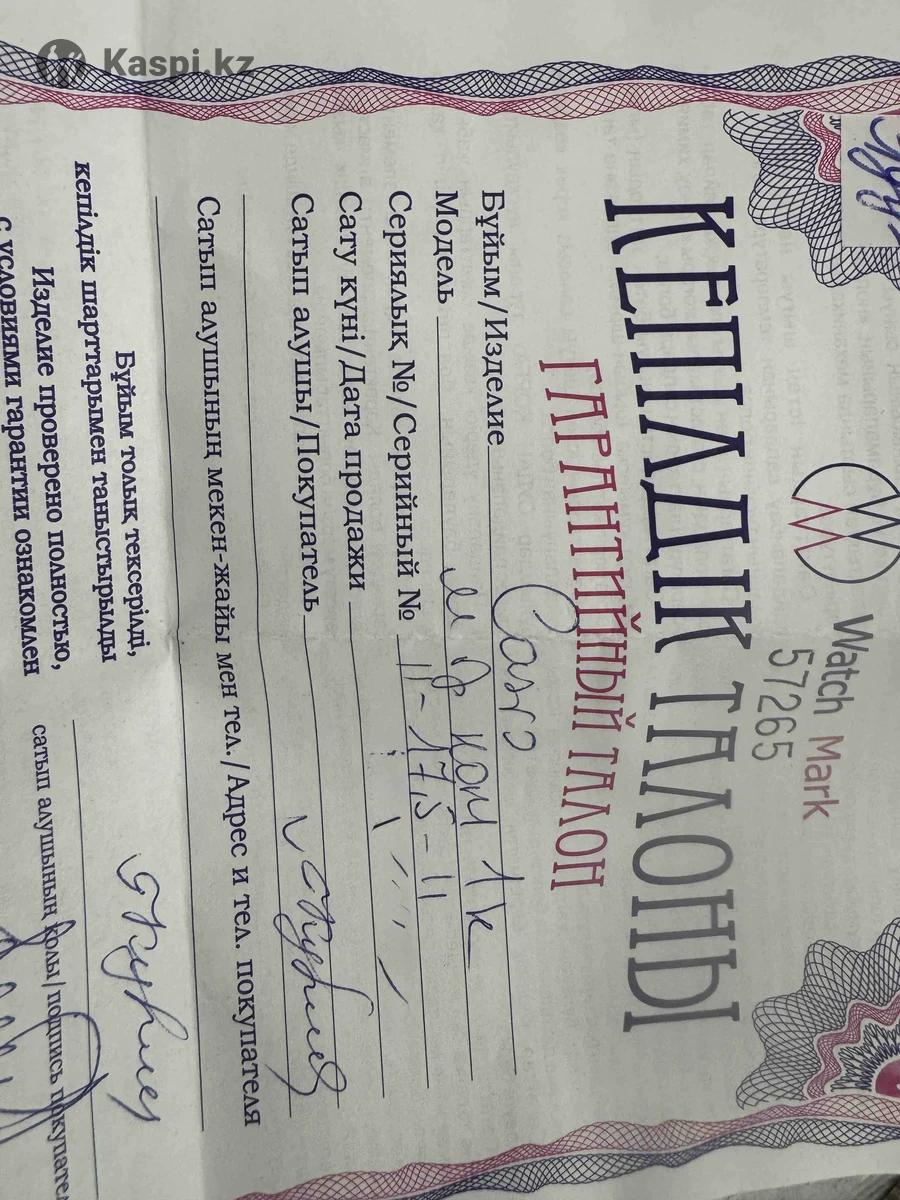 Kaspi.kz
Watch Mark
57265
КЕПІЛДІК ТАЛОНЫ
ГАРАНТИЙНЫЙ ТАЛОН
Бұйым/Изделие
Модель
Сериялық №/Серийный № 11-17,5-11
Сату күні/Дата продажи
Сатып алушы/Покупатель
Сатып алушының мекен-жайы мен тел./Адрес и тел. покупателя
Бұйым толық тексерілді,
кепілдік шарттарымен таныстырылды
Изделие проверено полностью,
с условиями гарантии ознакомлен
сатып алушының қолы/подпись покупателя